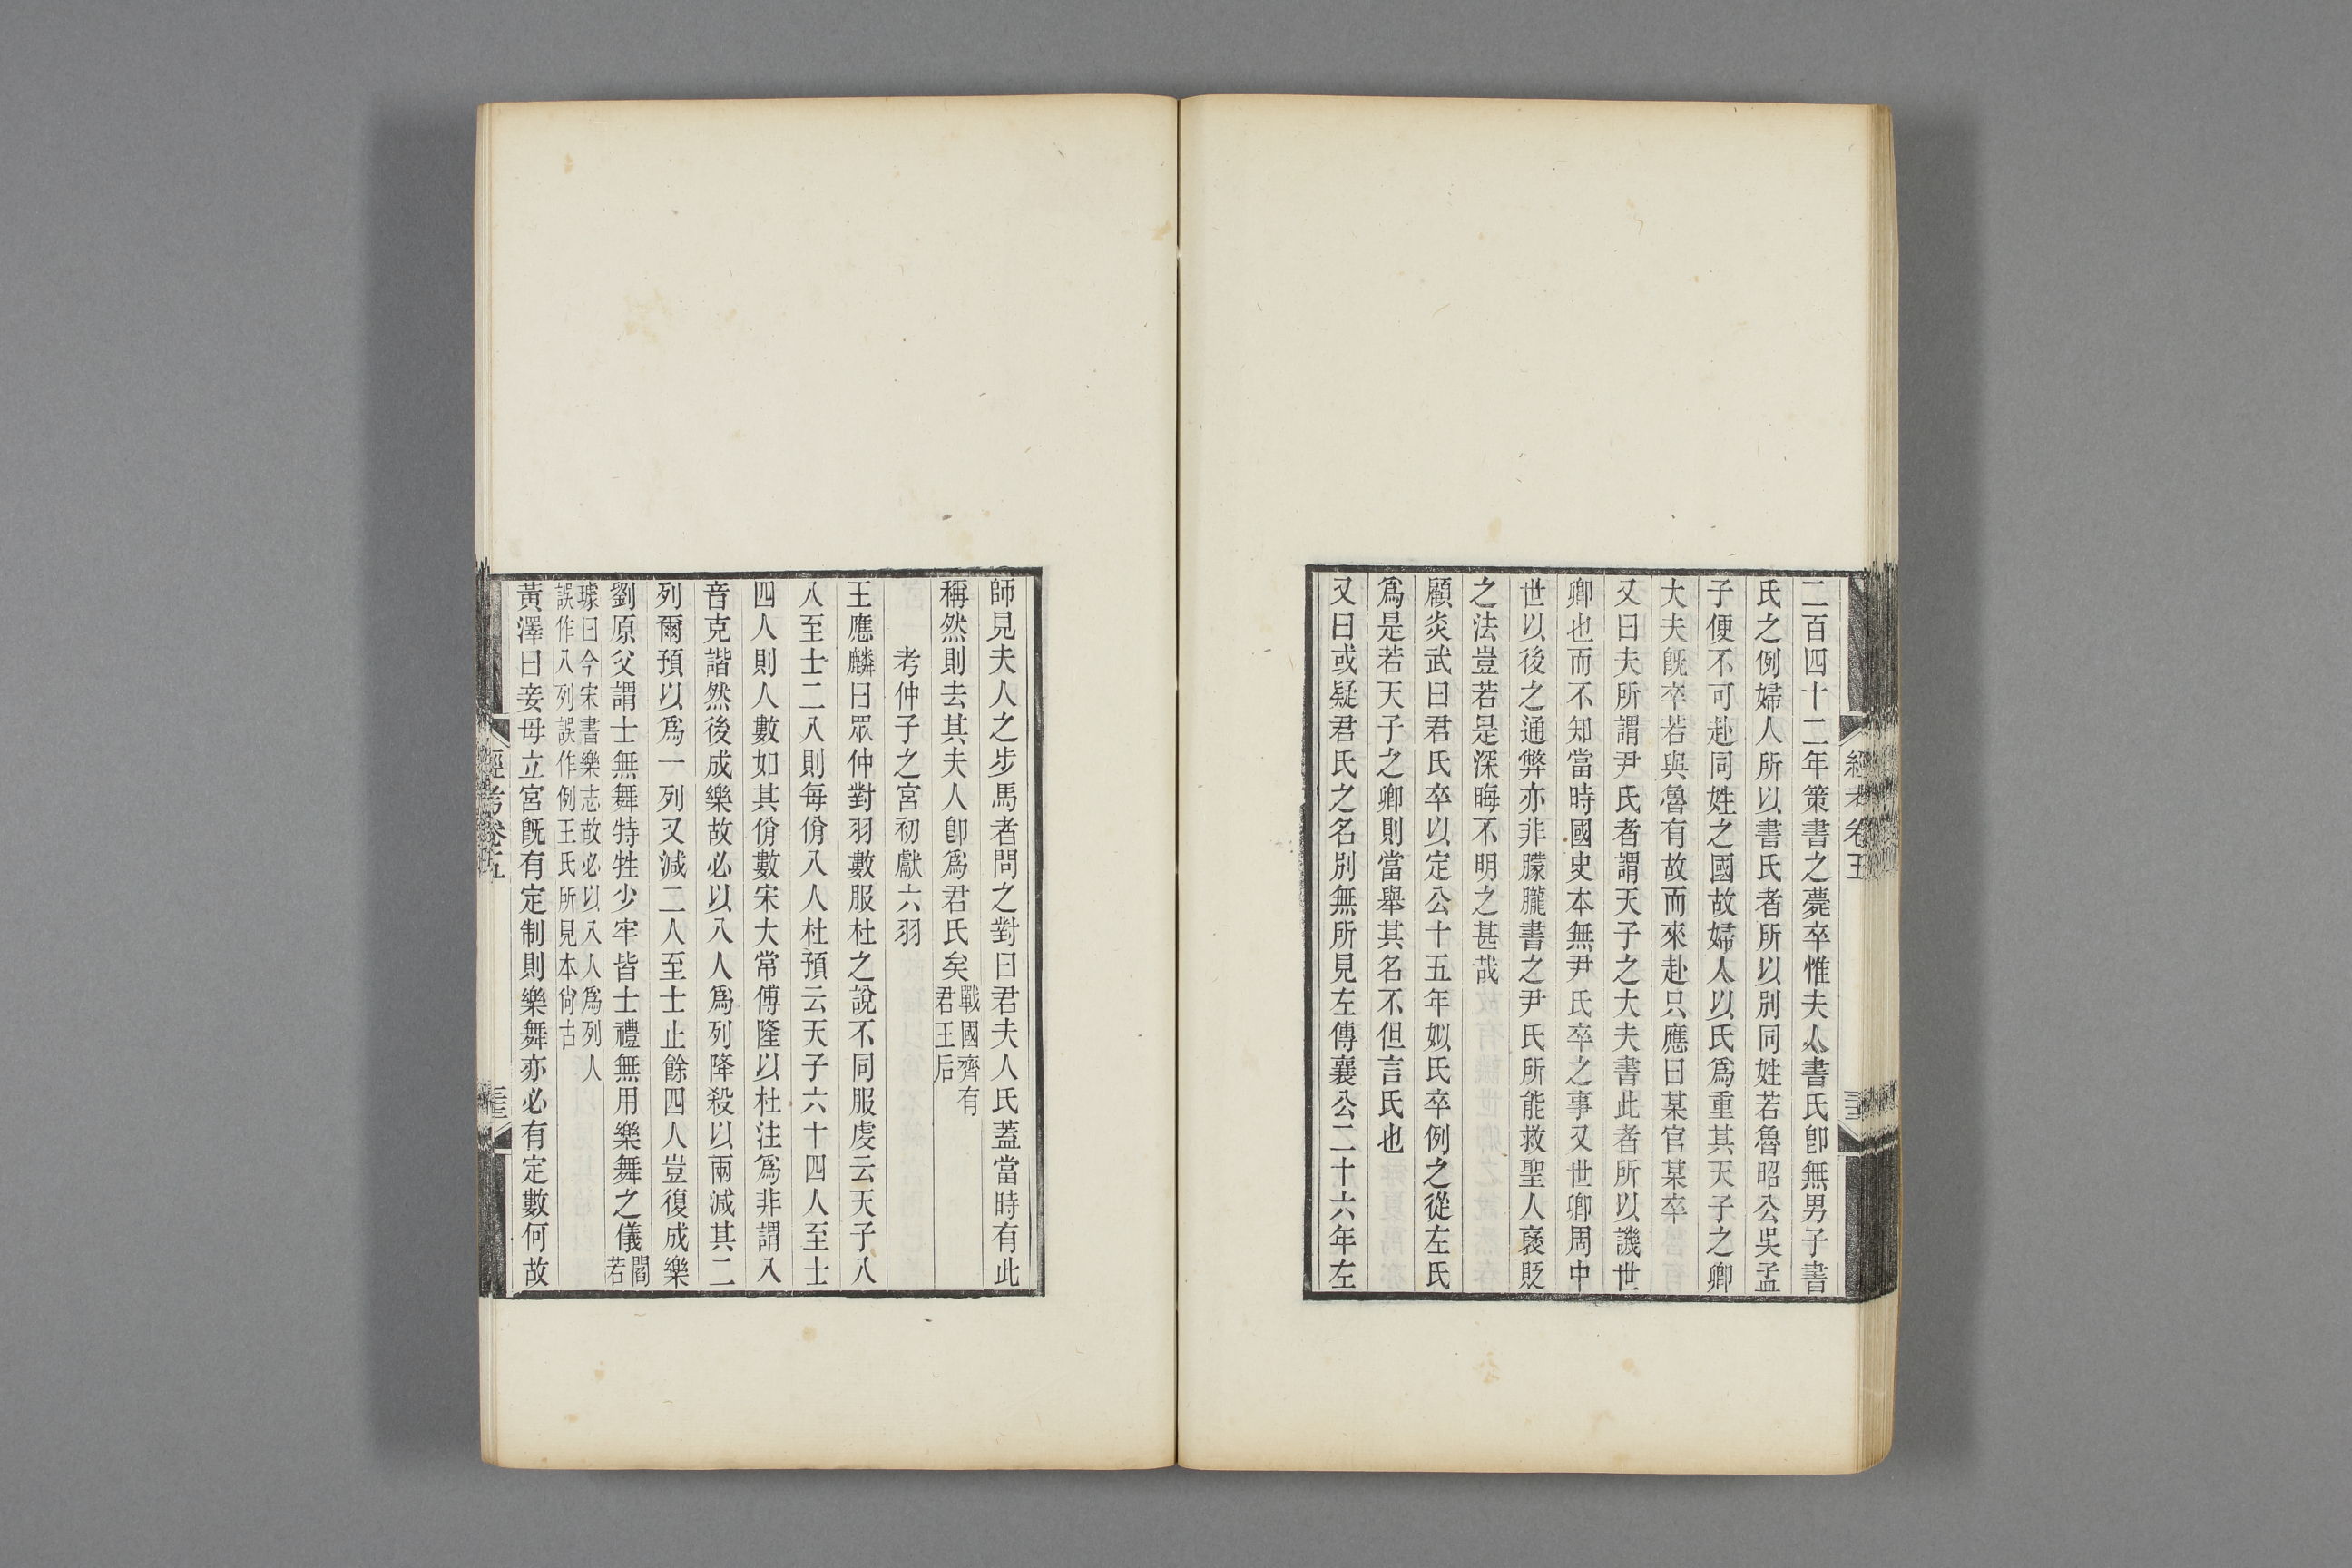 二百四十二年策書之薨卒惟夫人書氏卽無男子書
氏之例婦人所以書氏者所以別同姓若魯昭公吳孟
子便不可赴同姓之國故婦人以氏爲重其天子之卿
大夫旣卒若與魯有故而來赴只應曰某官某卒
又曰夫所謂尹氏者謂天子之大夫書此者所以譏世
卿也而不知當時國史本無尹氏卒之事又世卿周中
世以後之通弊亦非朦朧書之尹氏所能救聖人襃貶
之法豈若是深晦不明之甚哉
顧炎武曰君氏卒以定公十五年姒氏卒例之從左氏
爲是若天子之卿則當舉其名不但言氏也
又曰或疑君氏之名別無所見左傳襄公二十六年左
師見夫人之步馬者問之對曰君夫人氏蓋當時有此
稱然則去其夫人卽爲君氏矣戰國齊有
君王后
考仲子之宮初獻六羽
王應麟曰眾仲對羽數服杜之說不同服虔云天子八
八至士二八則每佾八人杜預云天子六十四人至士
四人則人數如其佾數宋大常傅隆以杜注爲非謂八
音克諧然後成樂故必以八人爲列降殺以兩減其二
列爾預以爲一列又減二人至士止餘四人豈復成樂
劉原父謂士無舞特牲少牢皆士禮無用樂舞之儀閻
若
璩曰今宋書樂志故必以八人爲列人
誤作八列誤作例王氏所見本尙古
黃澤曰妾母立宮旣有定制則樂舞亦必有定數何故
經考卷五
經考卷五